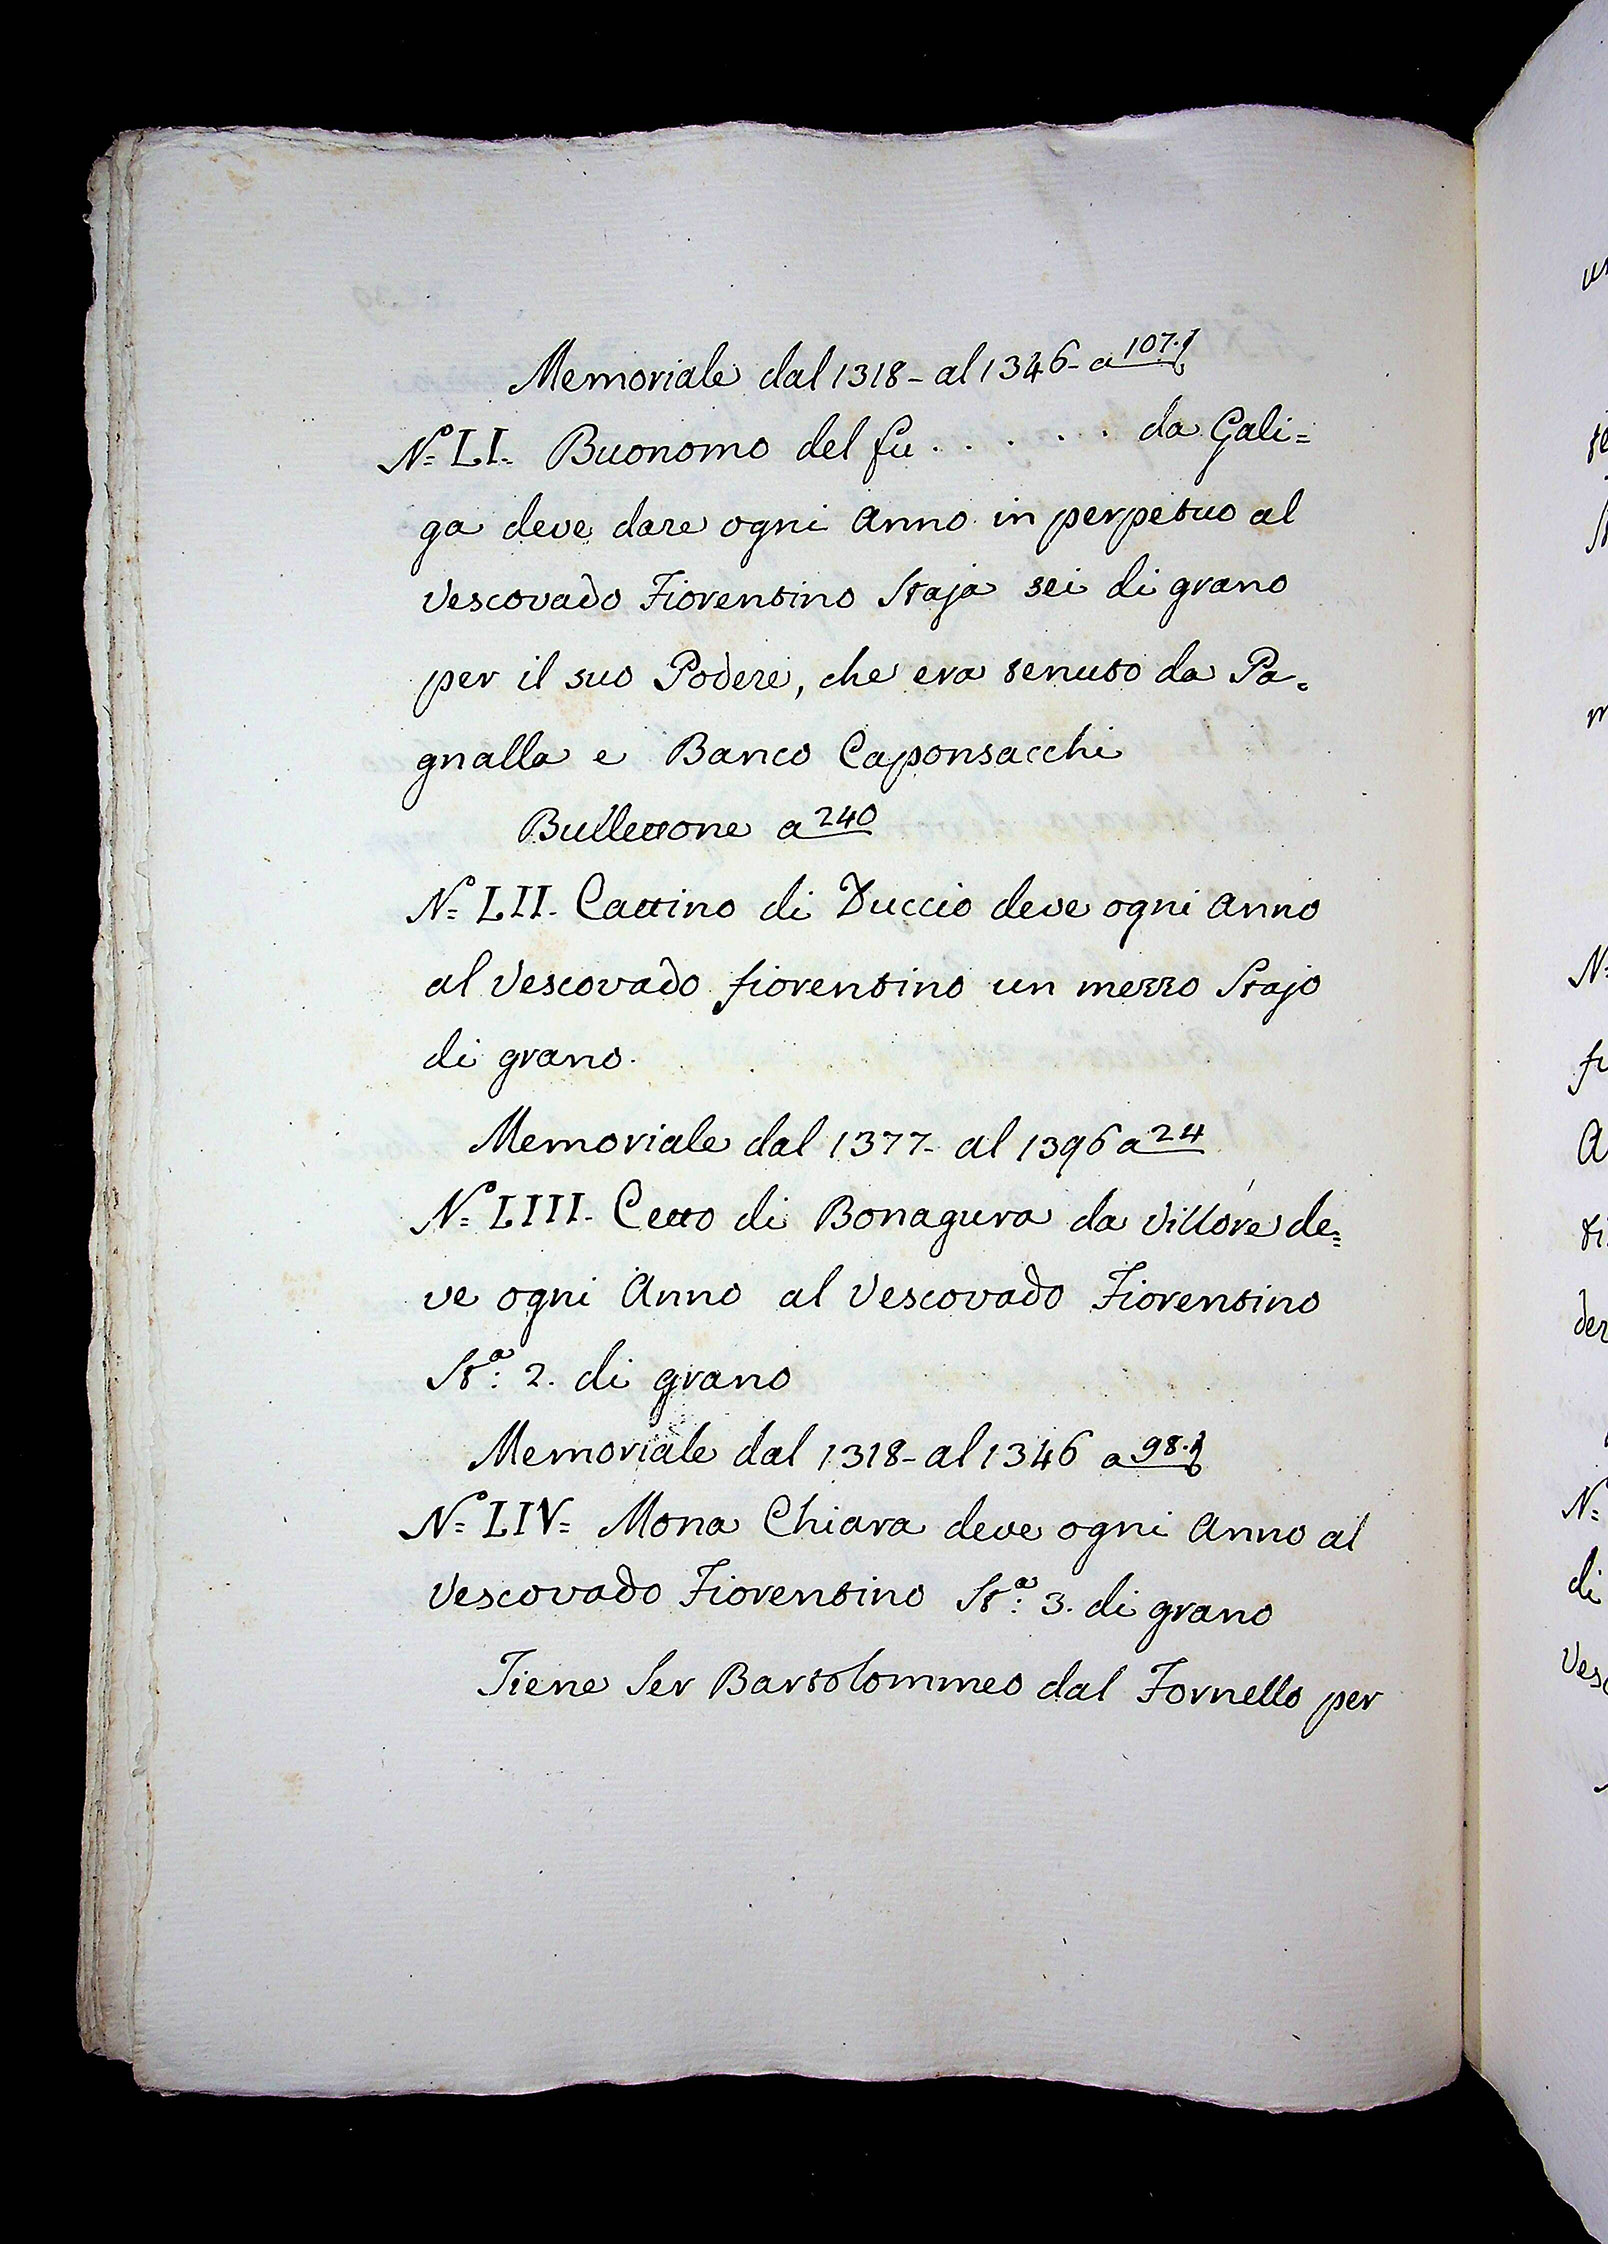 Memoriale dal 1318- al 1346- a 107.
N.o LI. Buonomo del fu . . . . . . da Gali=
ga deve dare ogni Anno in perpetuo al
Vescovado Fiorentino Staja sei di grano
per il suo Podere, che era tenuto da Pa=
gnalla e Banco Caponsacchi
Bullettone a 240
N.o LII. Cattino di Duccio deve ogni Anno
al Vescovado fiorentino un mezzo Stajo
di grano.
Memoriale dal 1377- al 1396 a 24
N.o LIII. Cetto di Bonagura da Villóre de=
ve ogni Anno al Vescovado Fiorentino
St.a: 2. di grano
Memoriale dal 1318- al 1346 a 98.
N.o LIV= Mona Chiara deve ogni Anno al
Vescovado Fiorentino St.a: 3. di grano
Tiene Ser Bartolommeo dal Fornello per